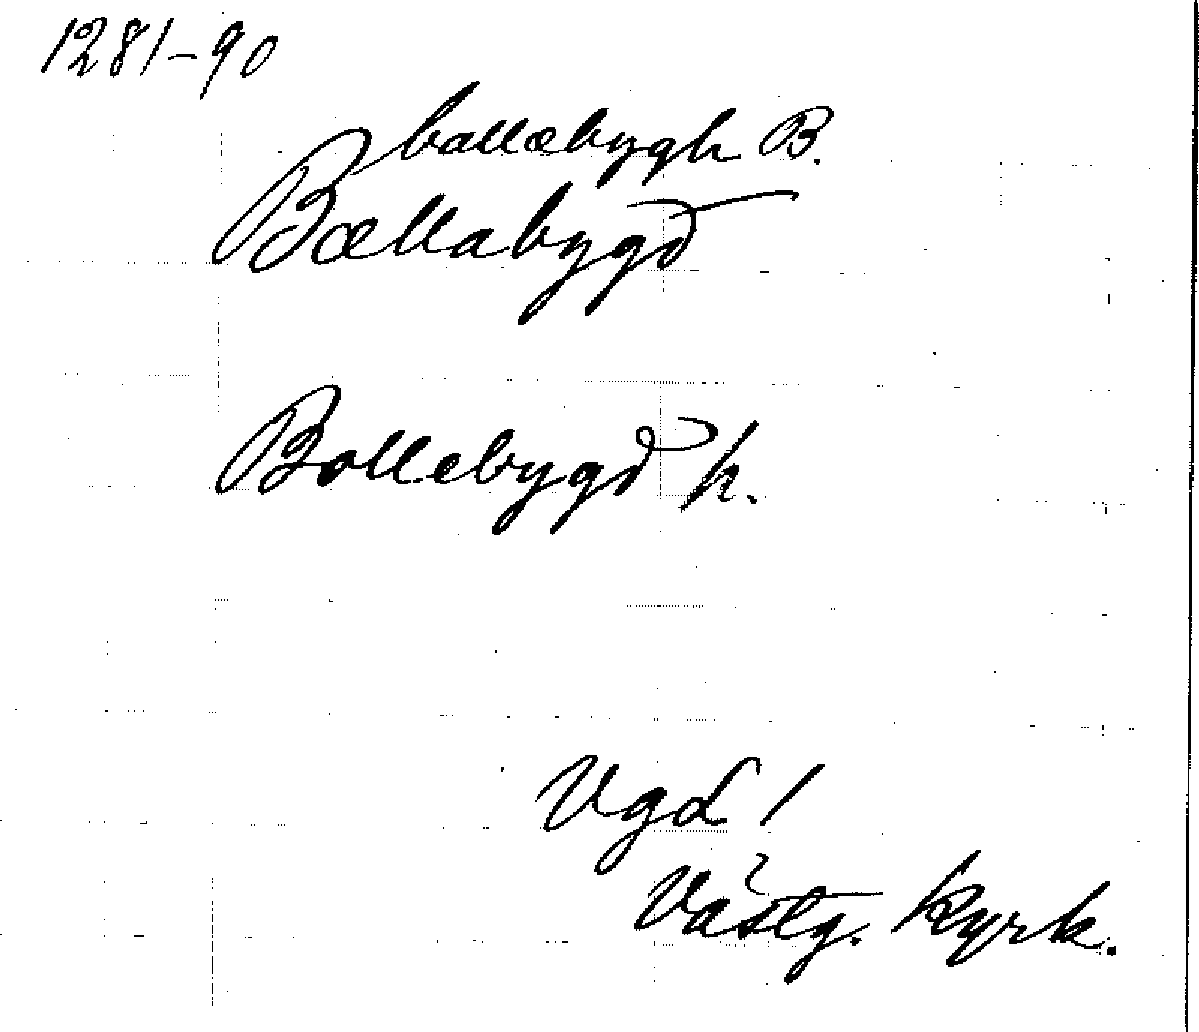 1281-90
ballæbygh B.
Bællabygd
Bollebygd h.
Vgd 1
Västg. kyrk.